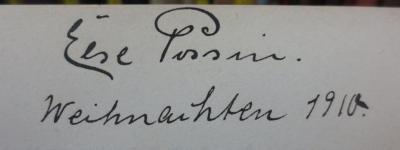 Else Possin.
Weihnachten 1910.